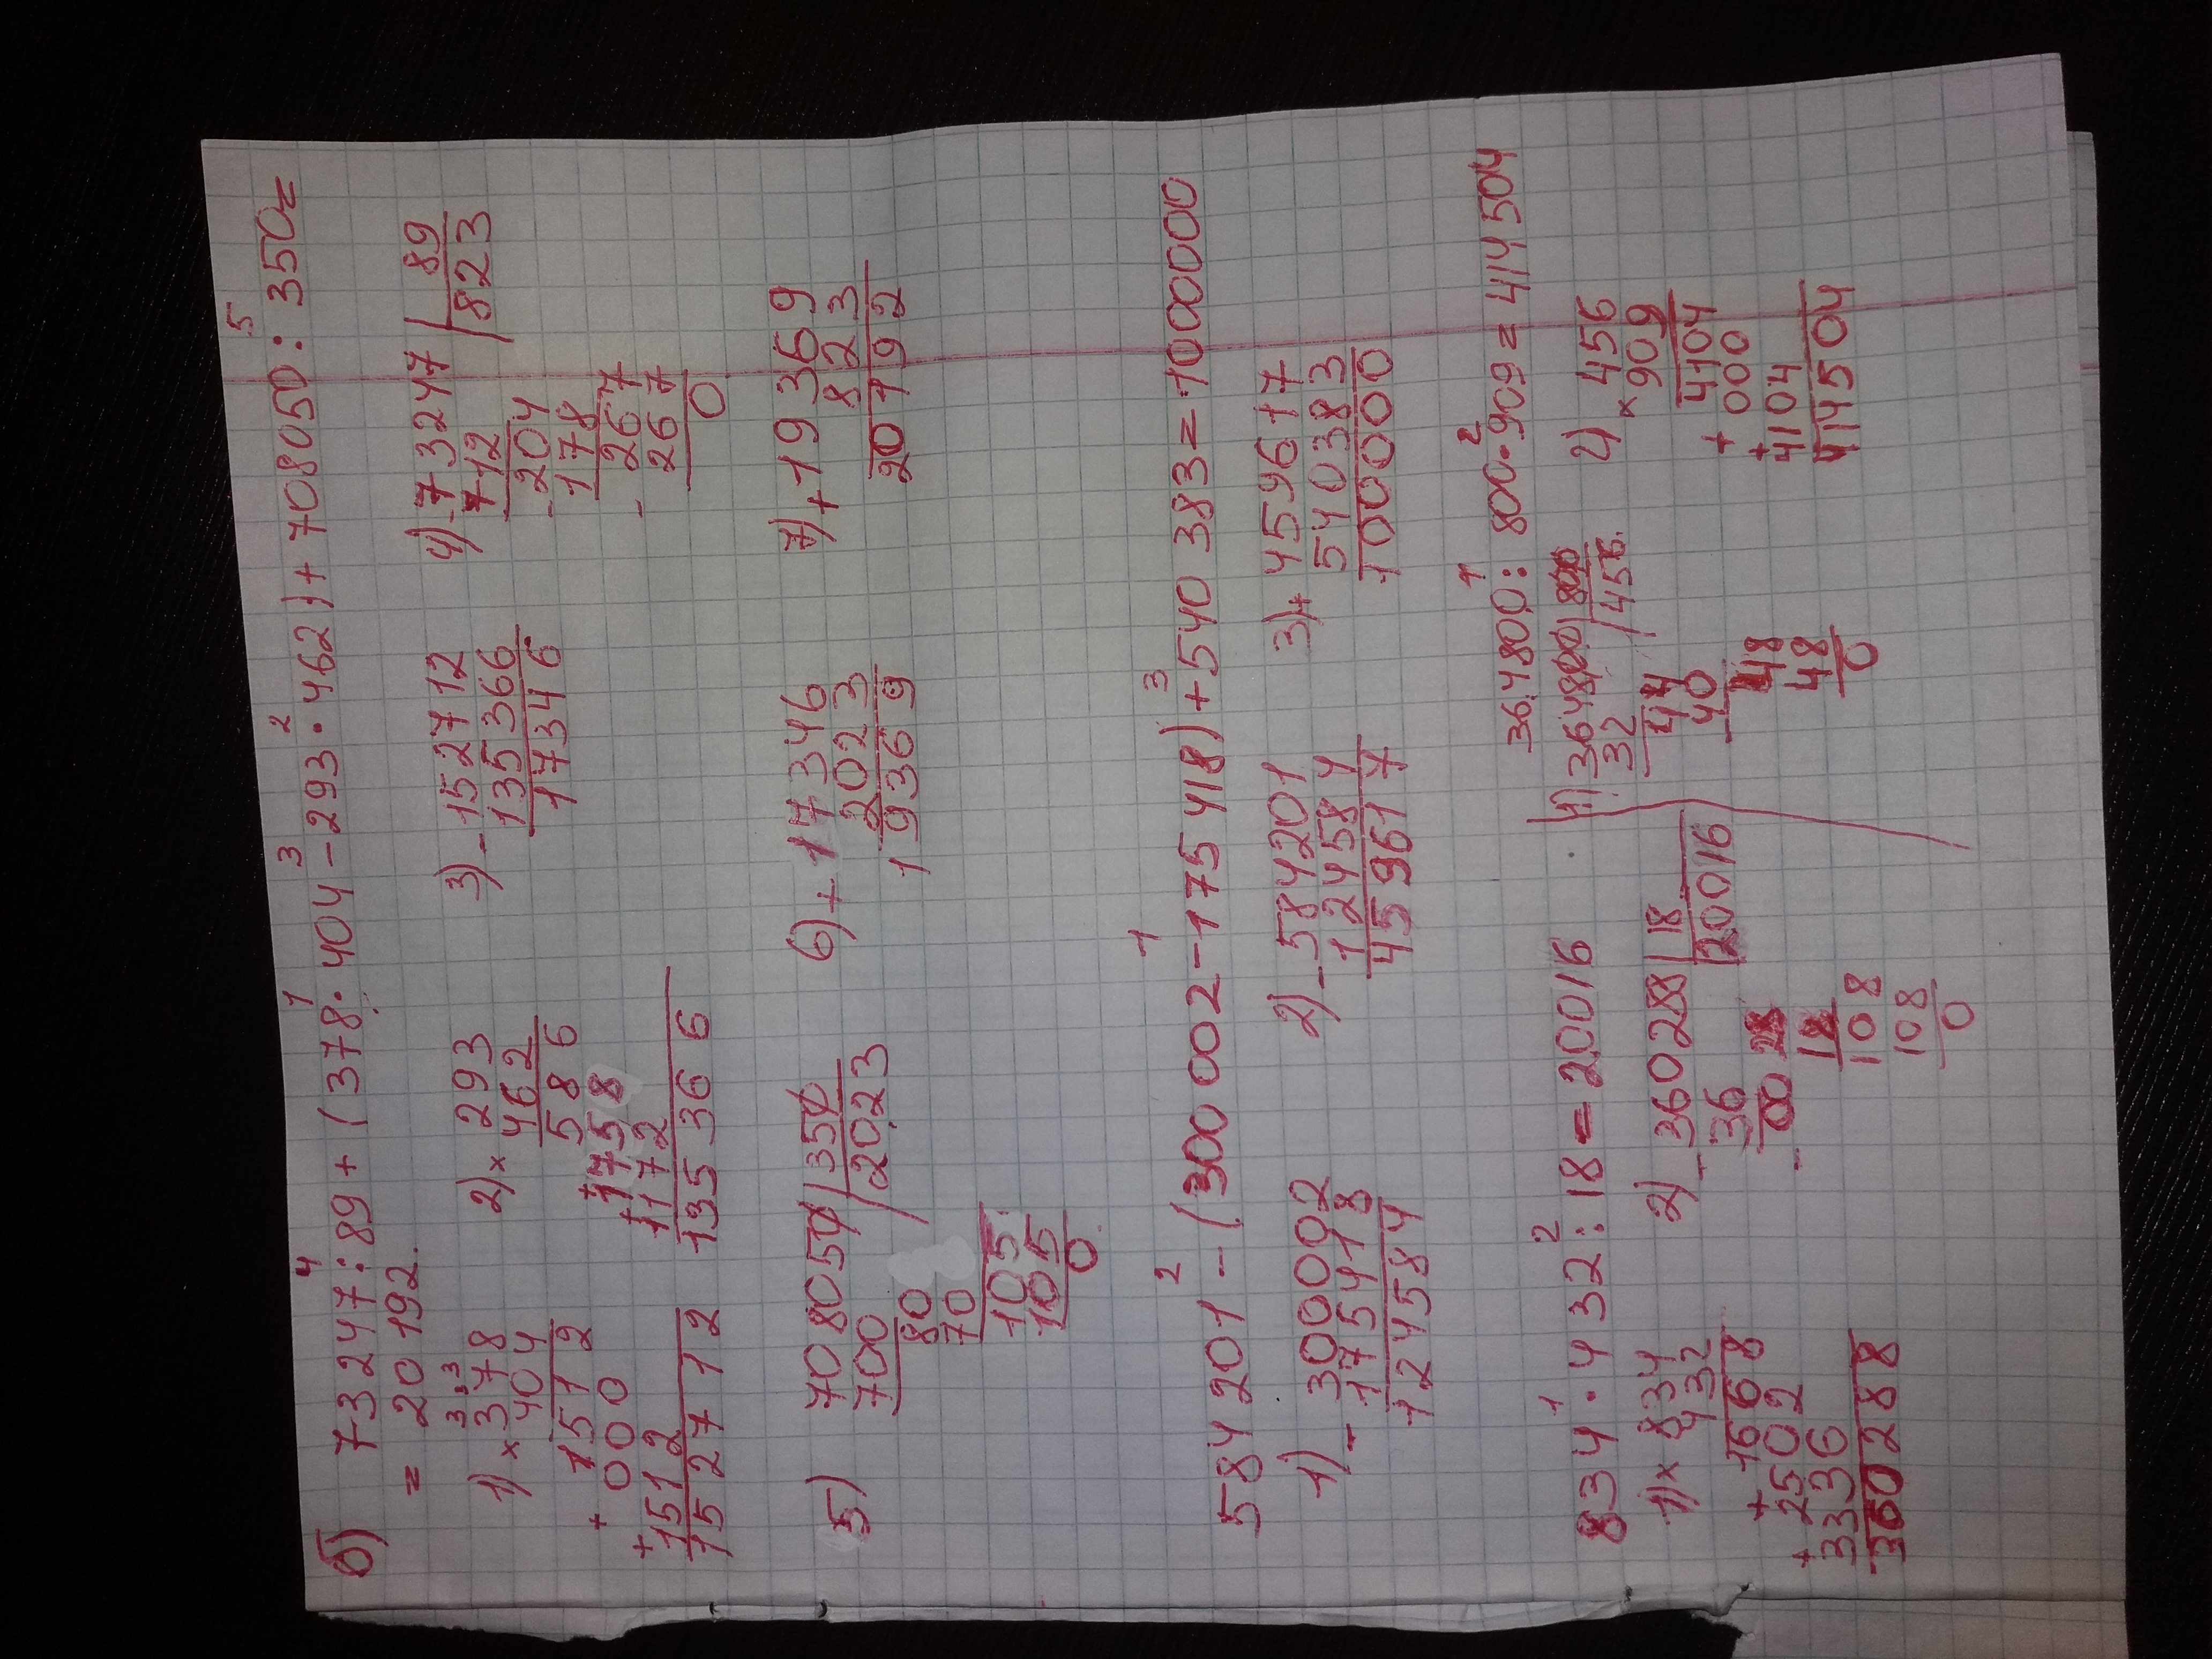 б) 73247 : 89 + (378 · 404 - 293 · 462) + 708050 : 350 =
4 1 3 2 5
= 20192.
1) × 378
3 3 3
404
1512
+ 000
+ 1512
152712
2) × 293
462
586
+ 1758
+ 1172
135366
3) - 152712
135366
17346
4) - 73247 | 89
712 | 823
- 204
178
- 267
267
0
5) 708050 | 350
700 | 2023
80
70
105
105
0
6) + 17346
2023
19369
7) + 19369
823
20192
584201 - (300002 - 175418) + 540383 = 1000000
2 1 3
1) - 300002
175418
124584
2) - 584201
124584
459617
3) + 459617
540383
1000000
834 · 432 : 18 = 20016
1 2
1) × 834
432
1668
+ 2502
+ 3336
360288
2) - 360288 | 18
36 | 20016
00 28
- 18
108
108
0
364800 : 800 · 909 = 414504
1 2
1) 364800 | 800
32 | 456.
44
40
48
48
0
2) 456
× 909
4104
+ 000
+ 4104
414504